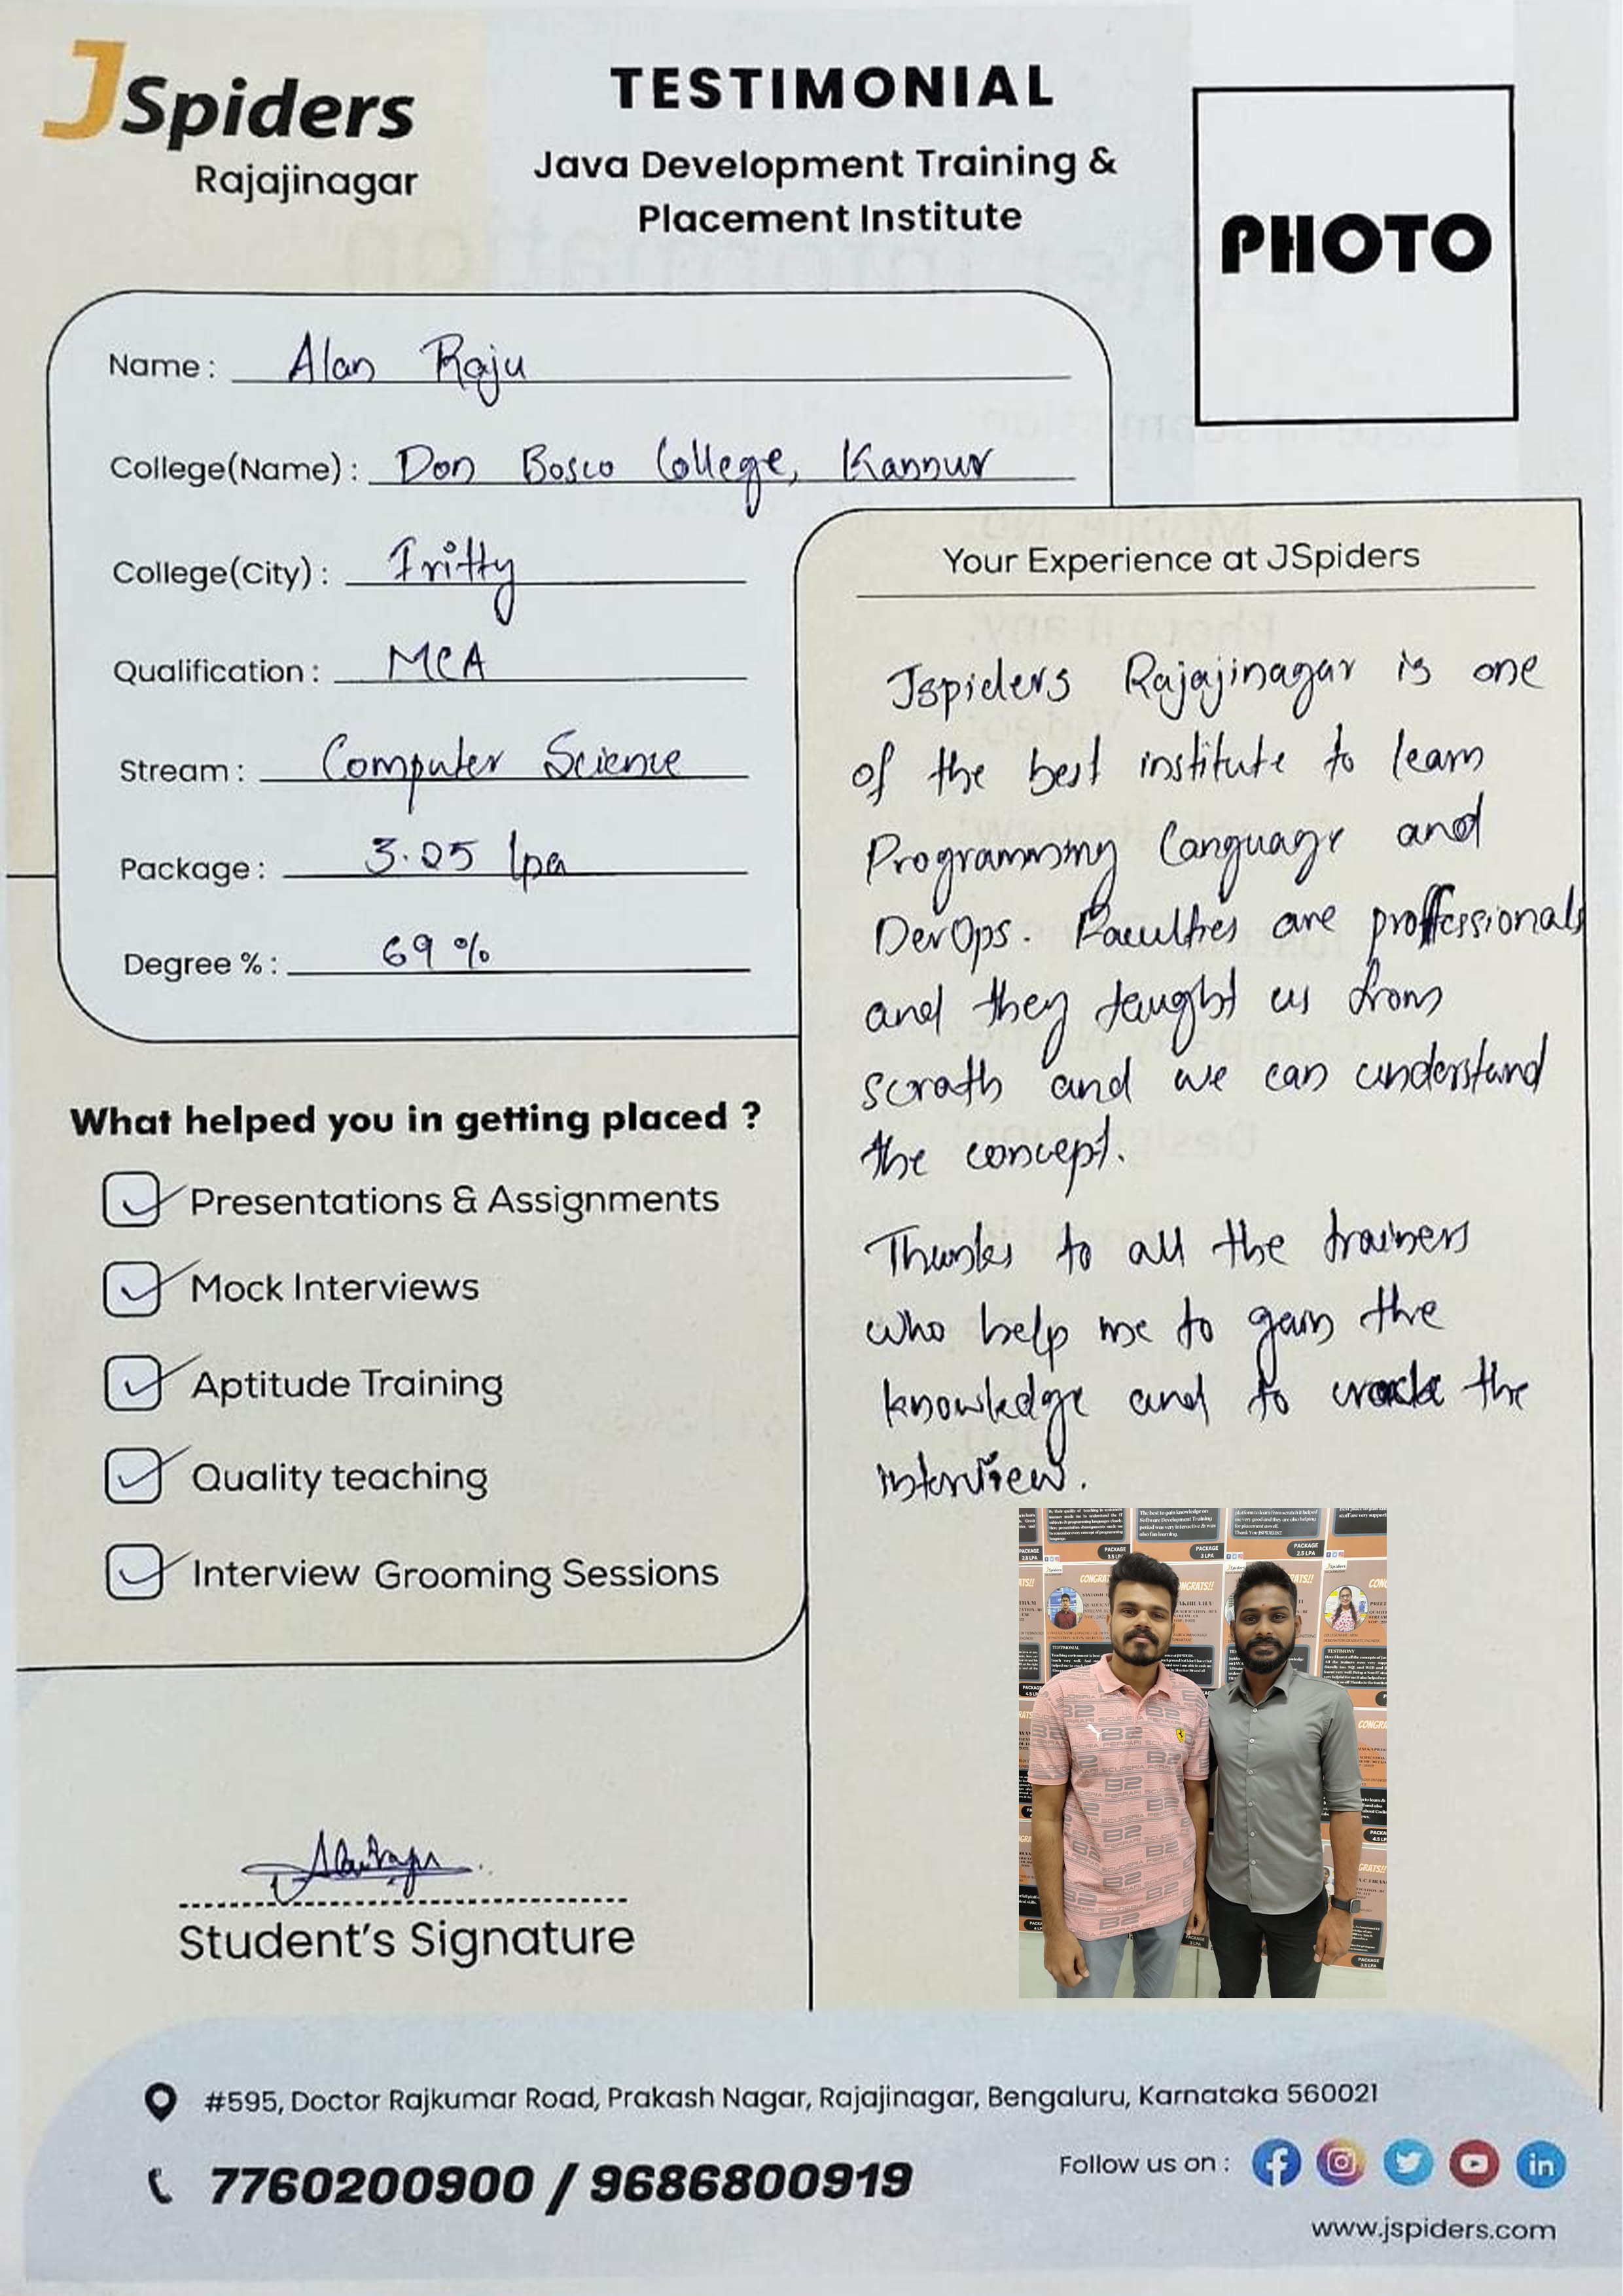 JSpiders
Rajajinagar
TESTIMONIAL
Java Development Training &
Placement Institute
PHOTO
Name : Alan Raju
College(Name) : Don Bosco College, Kannur
College(City) : Iritty
Qualification : MCA
Stream : Computer Science
Package : 3.05 lpa
Degree % : 69 %
What helped you in getting placed ?
Presentations & Assignments
Mock Interviews
Aptitude Training
Quality teaching
Interview Grooming Sessions
Student's Signature
Your Experience at JSpiders
Jspiders Rajajinagar is one
of the best institute to learn
Programming language and
DevOps. Faculties are proffessionals
and they taught us from
scrath and we can understand
the concept.
Thanks to all the trainers
who help me to gain the
knowledge and to crack the
interview.
#595, Doctor Rajkumar Road, Prakash Nagar, Rajajinagar, Bengaluru, Karnataka 560021
7760200900 / 9686800919
Follow us on :
www.jspiders.com